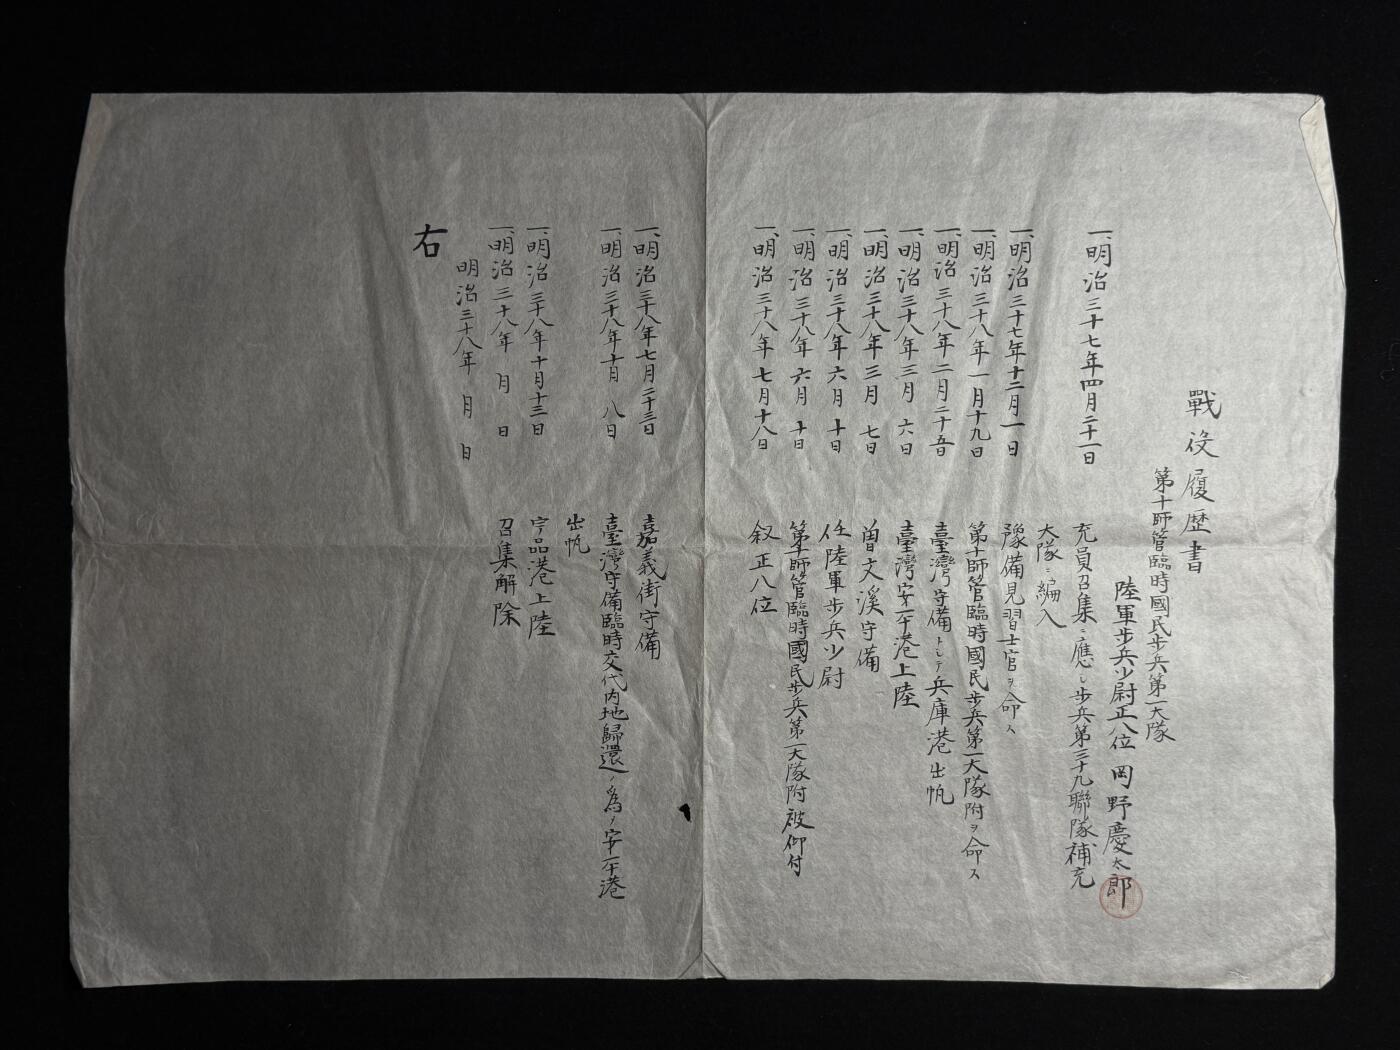 戰役履歴書
第十師管臨時國民歩兵第一大隊
陸軍歩兵少尉正八位 岡野慶太郎
一、明治三十七年四月二十一日 充員召集ニ應シ歩兵第三十九聯隊補充
大隊ニ編入
一、明治三十七年十二月一日 豫備見習士官ヲ命ス
一、明治三十八年一月十九日 第十師管臨時國民歩兵第一大隊附ヲ命ス
一、明治三十八年二月二十五日 臺灣守備トシテ兵庫港出帆
一、明治三十八年三月六日 臺灣安平港上陸
一、明治三十八年三月七日 曽文溪守備
一、明治三十八年六月十日 任陸軍歩兵少尉
一、明治三十八年六月十日 第十師管臨時國民歩兵第一大隊附被仰付
一、明治三十八年七月十八日 叙正八位
一、明治三十八年七月二十三日 嘉義街守備
一、明治三十八年十月八日 臺灣守備臨時交代内地歸還ノ爲メ安平港
出帆
一、明治三十八年十月十三日 宇品港上陸
一、明治三十八年 月 日 召集解除
明治三十八年 月 日
右